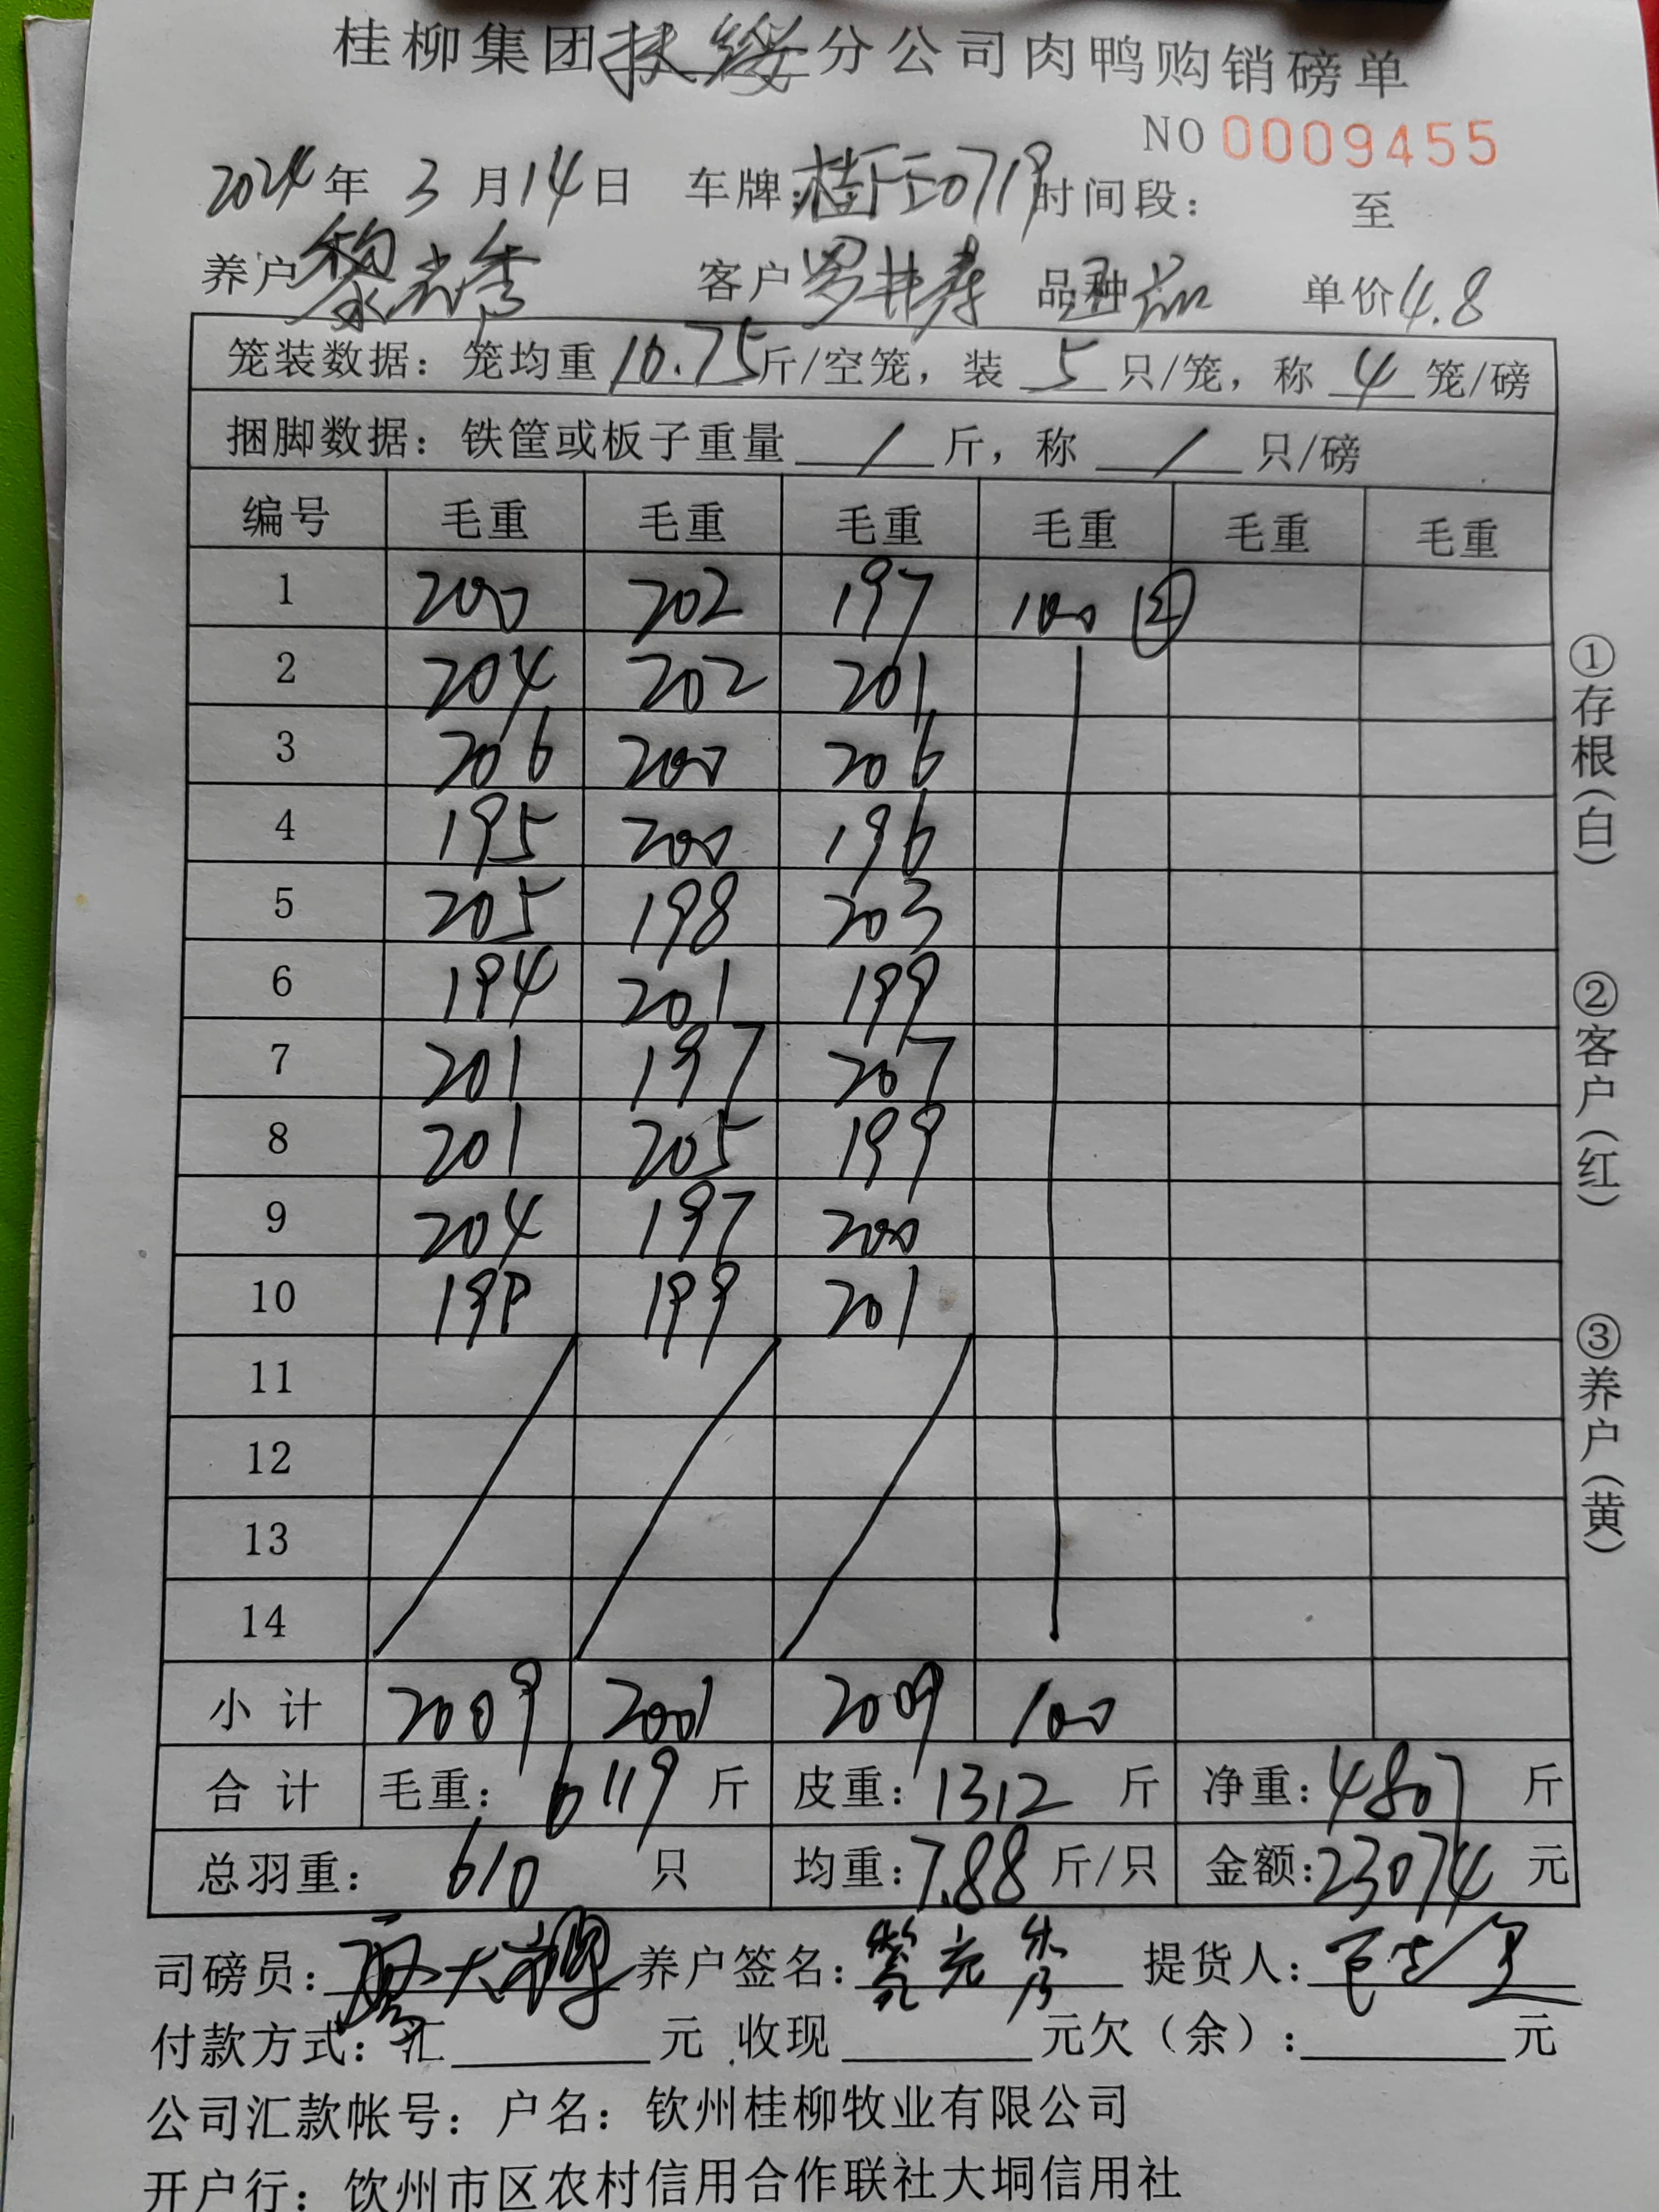 桂柳集团扶绥分公司肉鸭购销磅单
NO 0009455
2024年 3月14日 车牌: 时间段: 至
养户 黎 秀 客户 罗 寿 品种 单价4.8
笼装数据: 笼均重 10.75斤/空笼, 装 5 只/笼, 称 4 笼/磅
捆脚数据: 铁筐或板子重量 / 斤, 称 / 只/磅
编号 毛重 毛重 毛重 毛重 毛重 毛重
1 200 202 197 100 ②
2 204 202 201
3 206 200 206
4 195 200 196
5 205 198 203
6 194 201 199
7 201 197 207
8 201 205 199
9 204 197 200
10 199 199 201
11
12
13
14
小计 2009 2001 2009 100
合计 毛重: 6119 斤 皮重: 1312 斤 净重: 4807 斤
总羽重: 610 只 均重: 7.88 斤/只 金额: 23074 元
司磅员: 养户签名: 提货人:
付款方式: 汇 元 收现 元欠(余): 元
公司汇款帐号: 户名: 钦州桂柳牧业有限公司
开户行: 钦州市区农村信用合作联社大垌信用社
①存根(白)
②客户(红)
③养户(黄)